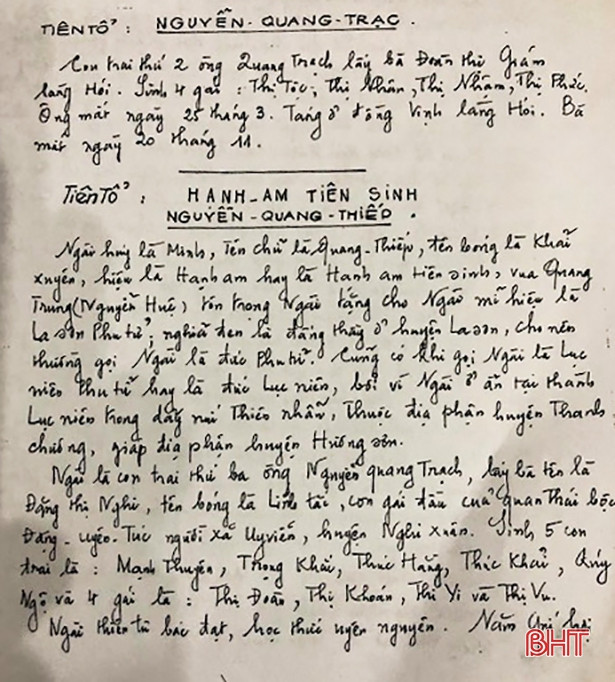 TIÊN TỔ : NGUYỄN - QUANG - TRẠC .
Con trai thứ 2 ông Quang Trạch lấy bà Đoàn thị Giám
làng Hói . Sinh 4 gái : Thị Tộc, Thị Nhân, Thị Nhâm, Thị Phúc.
Ông mất ngày 25 tháng 3. Táng ở đồng Vịnh làng Hói. Bà
mất ngày 20 tháng 11.
TIÊN TỔ : HẠNH - AM TIÊN SINH
NGUYỄN - QUANG - THIẾP .
Ngài húy là Minh, tên chữ là Quang - Thiếp, tên bóng là Khải
xuyên, hiệu là Hạnh am hay là Hạnh am tiên sinh, vua Quang
Trung (Nguyễn Huệ) tôn trọng Ngài tặng cho Ngài mĩ hiệu là
La sơn Phu tử, nghĩa đen là đấng thầy ở huyện La sơn, cho nên
thường gọi Ngài là đức Phu tử. Cũng có khi gọi Ngài là Lục
niên Phu tử hay là đức Lục niên, bởi vì Ngài ở ẩn tại thành
Lục niên trong dãy núi Thiên nhẫn, thuộc địa phận huyện Thanh
chương, giáp địa phận huyện Hương sơn.
Ngài là con trai thứ ba ông Nguyễn quang Trạch, lấy bà tên là
Đặng thị Nghi, tên bóng là Linh tài, con gái đầu của quan Thái bộc
Đặng - uyên - Túc người xã Uy viễn, huyện Nghi Xuân. Sinh 5 con
trai là : Mạnh Thuyên, Trọng Khải, Thúc Hằng, Thúc Khải, Quý
Ngộ và 4 gái là : Thị Đoan, Thị Khoán, Thị Yi và Thị Vu.
Ngài thiên tư bác đạt, học thức uyên nguyên . Năm
BHT